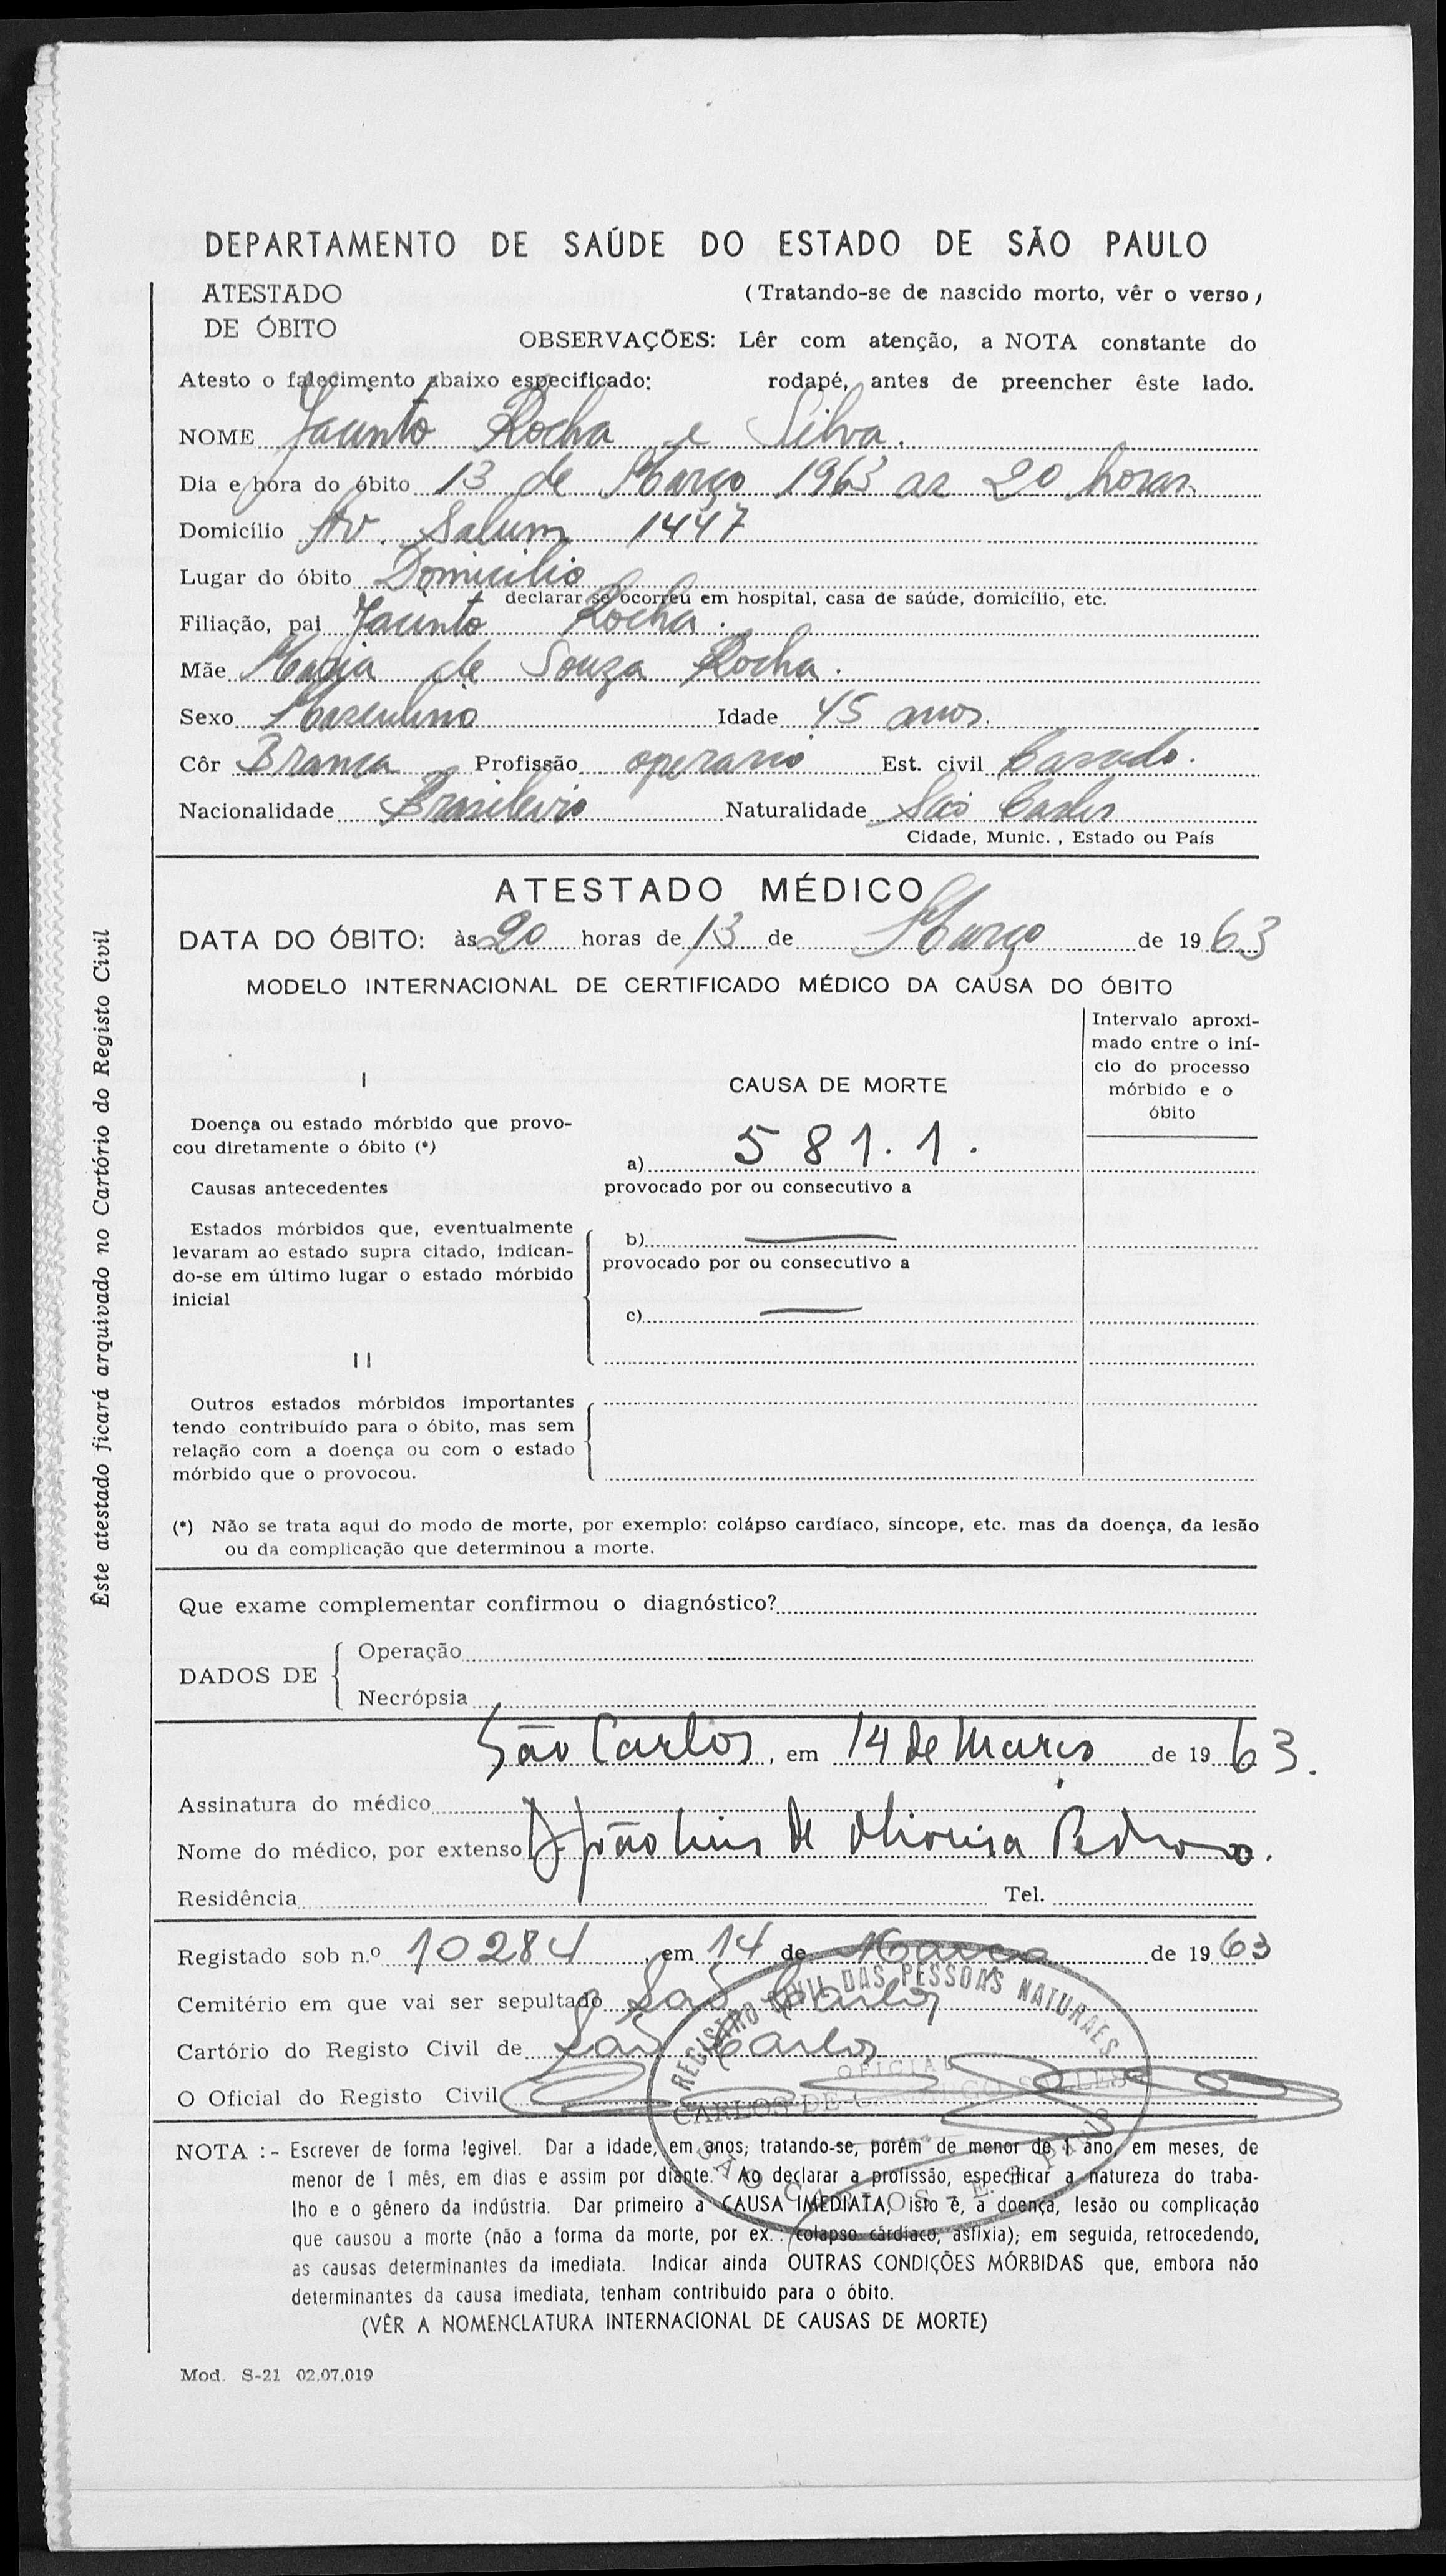 DEPARTAMENTO DE SAÚDE DO ESTADO DE SÃO PAULO
ATESTADO
DE ÓBITO
(Tratando-se de nascido morto, vêr o verso)
OBSERVAÇÕES: Lêr com atenção, a NOTA constante do
rodapé, antes de preencher êste lado.
Atesto o falecimento abaixo especificado:
NOME Jacinto Rocha e Silva.
Dia e hora do óbito 13 de Março 1963 as 20 horas
Domicílio Av. Salum 1447
Lugar do óbito Domicilio
declarar se ocorreu em hospital, casa de saúde, domicílio, etc.
Filiação, pai Jacinto Rocha.
Mãe Maria de Souza Rocha.
Sexo Masculino Idade 45 anos.
Côr Branca Profissão operario Est. civil Casado.
Nacionalidade Brasileiro Naturalidade São Carlos
Cidade, Munic. , Estado ou País
ATESTADO MÉDICO
DATA DO ÓBITO: às 20 horas de 13 de Março de 1963
MODELO INTERNACIONAL DE CERTIFICADO MÉDICO DA CAUSA DO ÓBITO
Intervalo aproxi-
mado entre o iní-
cio do processo
mórbido e o
óbito
I
CAUSA DE MORTE
Doença ou estado mórbido que provo-
cou diretamente o óbito (*)
a) 581.1.
Causas antecedentes
provocado por ou consecutivo a
Estados mórbidos que, eventualmente
levaram ao estado supra citado, indican-
do-se em último lugar o estado mórbido
inicial
b)
provocado por ou consecutivo a
c)
II
Outros estados mórbidos importantes
tendo contribuído para o óbito, mas sem
relação com a doença ou com o estado
mórbido que o provocou.
(*) Não se trata aqui do modo de morte, por exemplo: colápso cardíaco, síncope, etc. mas da doença, da lesão
ou da complicação que determinou a morte.
Que exame complementar confirmou o diagnóstico?
DADOS DE
Operação
Necrópsia
São Carlos, em 14 de Março de 1963.
Assinatura do médico
Nome do médico, por extenso João Luis de Oliveira Pedroso.
Residência Tel.
Registado sob n.º 10284, em 14 de Março de 1963
Cemitério em que vai ser sepultado São Carlos
Cartório do Registo Civil de São Carlos
O Oficial do Registo Civil
REGISTRO CIVIL DAS PESSOAS NATURAES
OFICIAL
CARLOS DE CAMARGO SALLES
SÃO CARLOS - E. S. PAULO
NOTA :- Escrever de forma legivel. Dar a idade, em anos; tratando-se, porém de menor de 1 ano, em meses, de
menor de 1 mês, em dias e assim por diante. Ao declarar a profissão, especificar a natureza do traba-
lho e o gênero da indústria. Dar primeiro a CAUSA IMEDIATA, isto é, a doença, lesão ou complicação
que causou a morte (não a forma da morte, por ex.: colapso cárdiaco, asfixia); em seguida, retrocedendo,
as causas determinantes da imediata. Indicar ainda OUTRAS CONDIÇÕES MÓRBIDAS que, embora não
determinantes da causa imediata, tenham contribuido para o óbito.
(VÊR A NOMENCLATURA INTERNACIONAL DE CAUSAS DE MORTE)
Mod. S-21 02.07.019
Êste atestado ficará arquivado no Cartório do Registo Civil